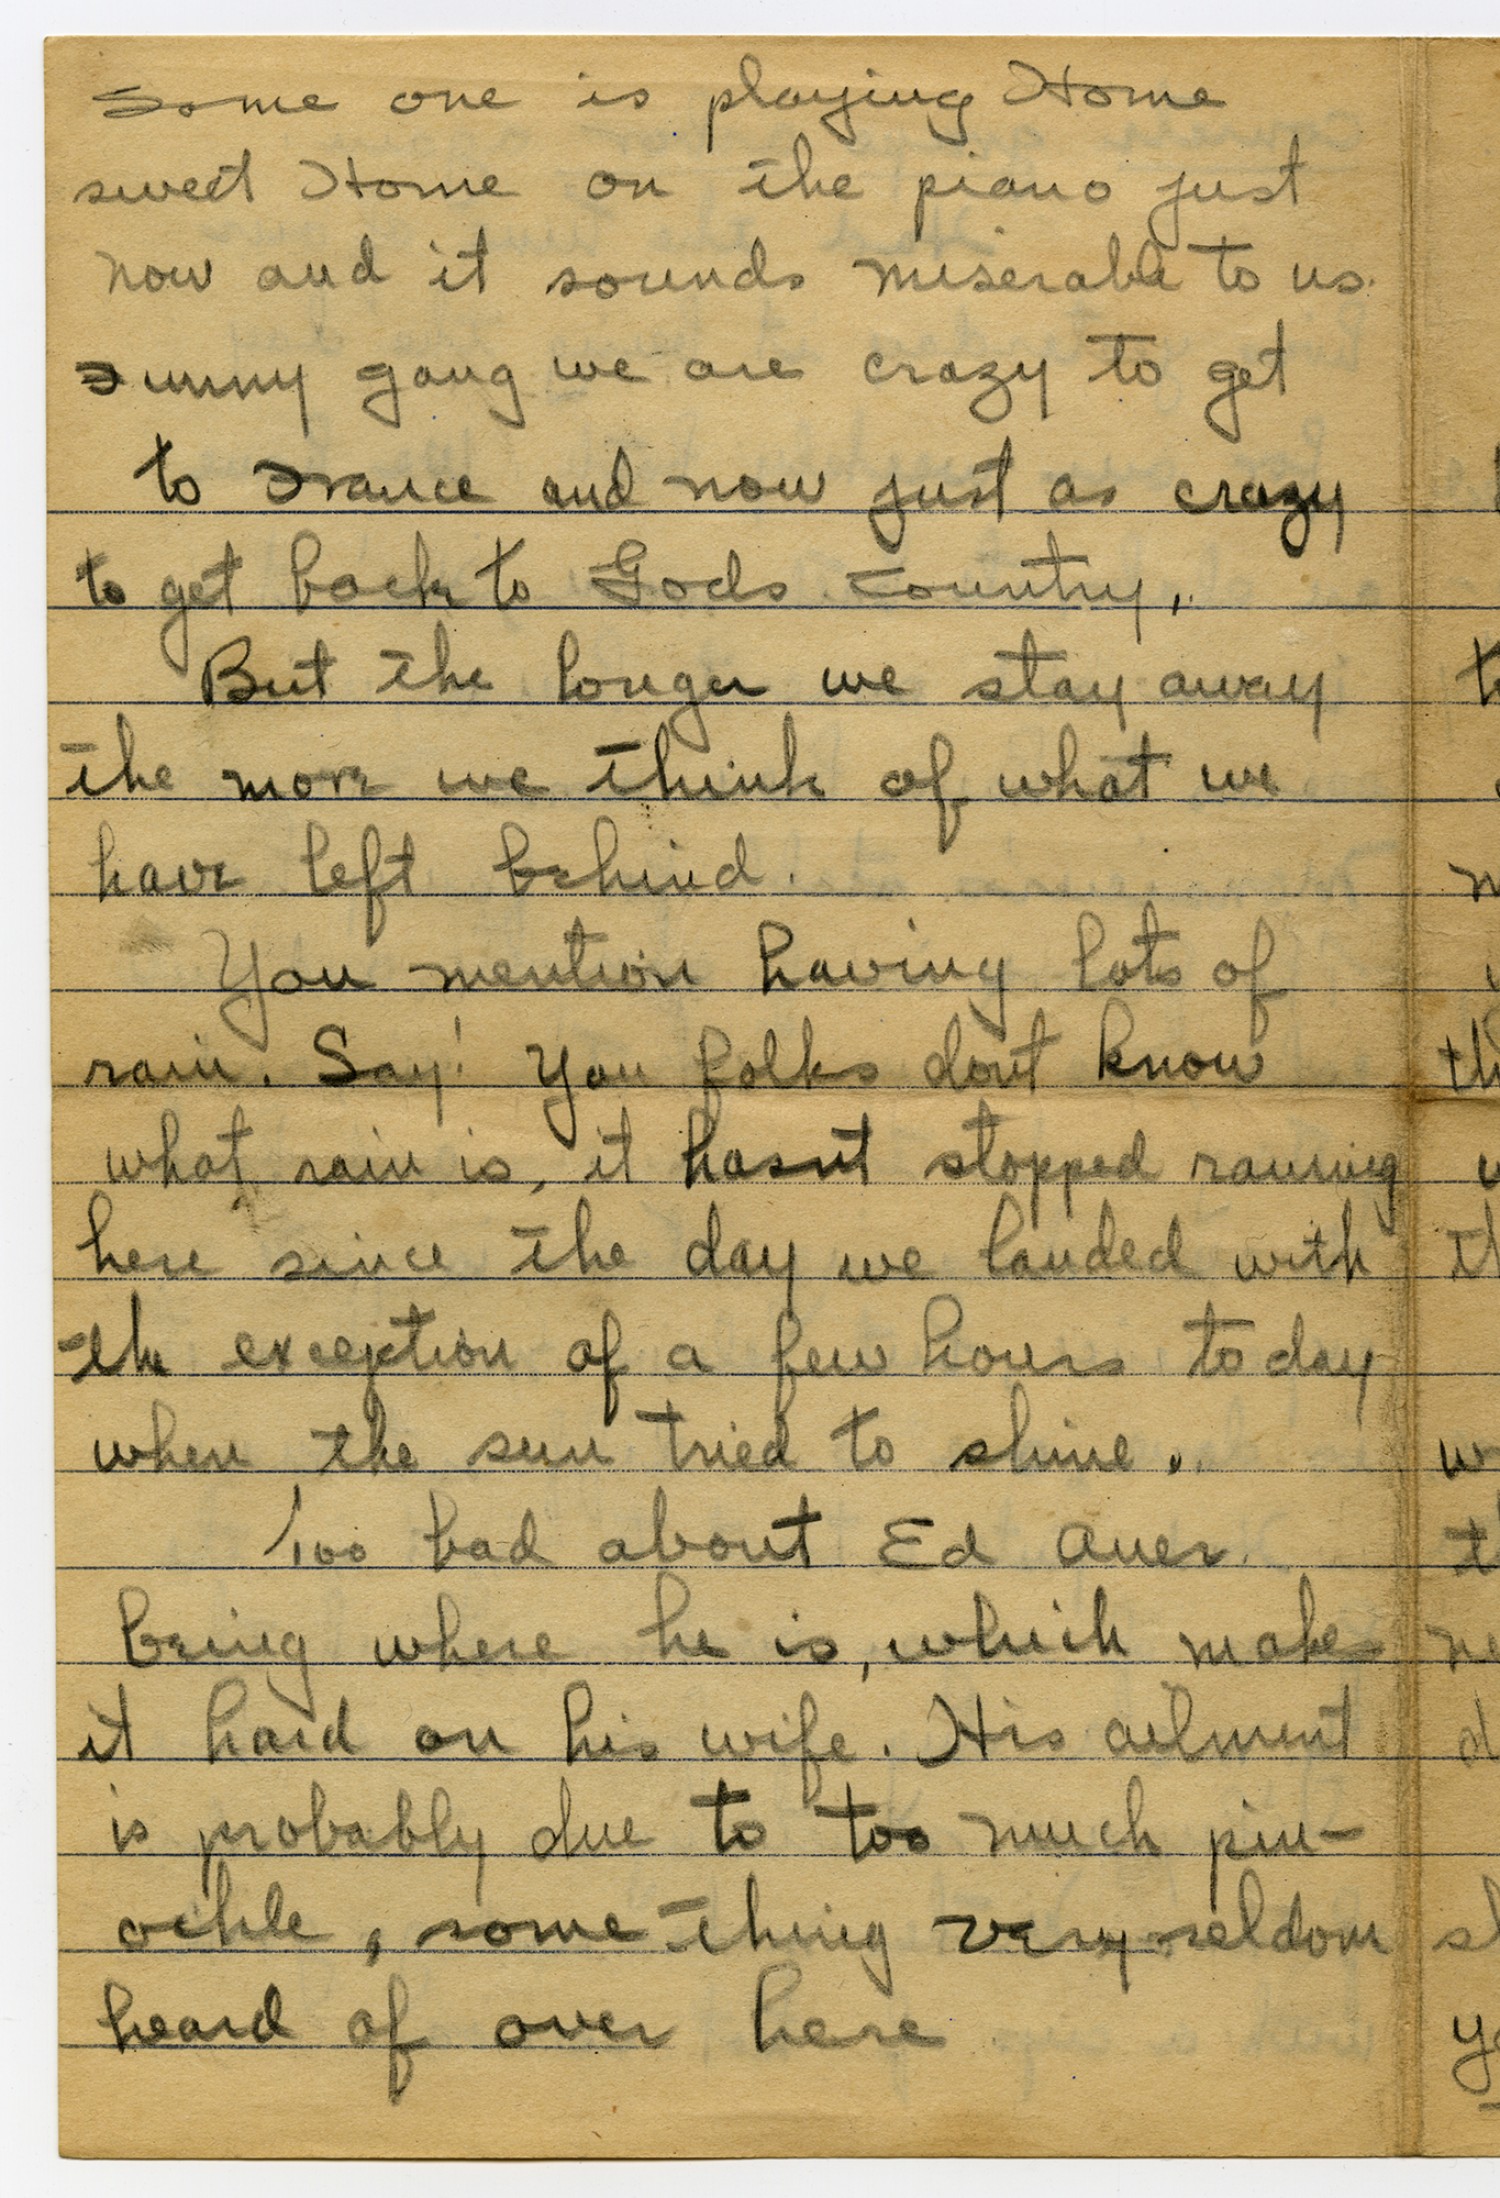 Some one is playing Home
sweet Home on the piano just
now and it sounds miserable to us.
Funny gang we are crazy to get
to France and now just as crazy
to get back to Gods Country.
But the longer we stay away
the more we think of what we
have left behind.
You mention having lots of
rain. Say! You folks dont know
what rain is, it hasnt stopped raining
here since the day we landed with
the exception of a few hours to day
when the sun tried to shine.
Too bad about Ed Auer.
being where he is, which makes
it hard on his wife. His ailment
is probably due to too much pin-
ochle, some thing very seldom
heard of over here